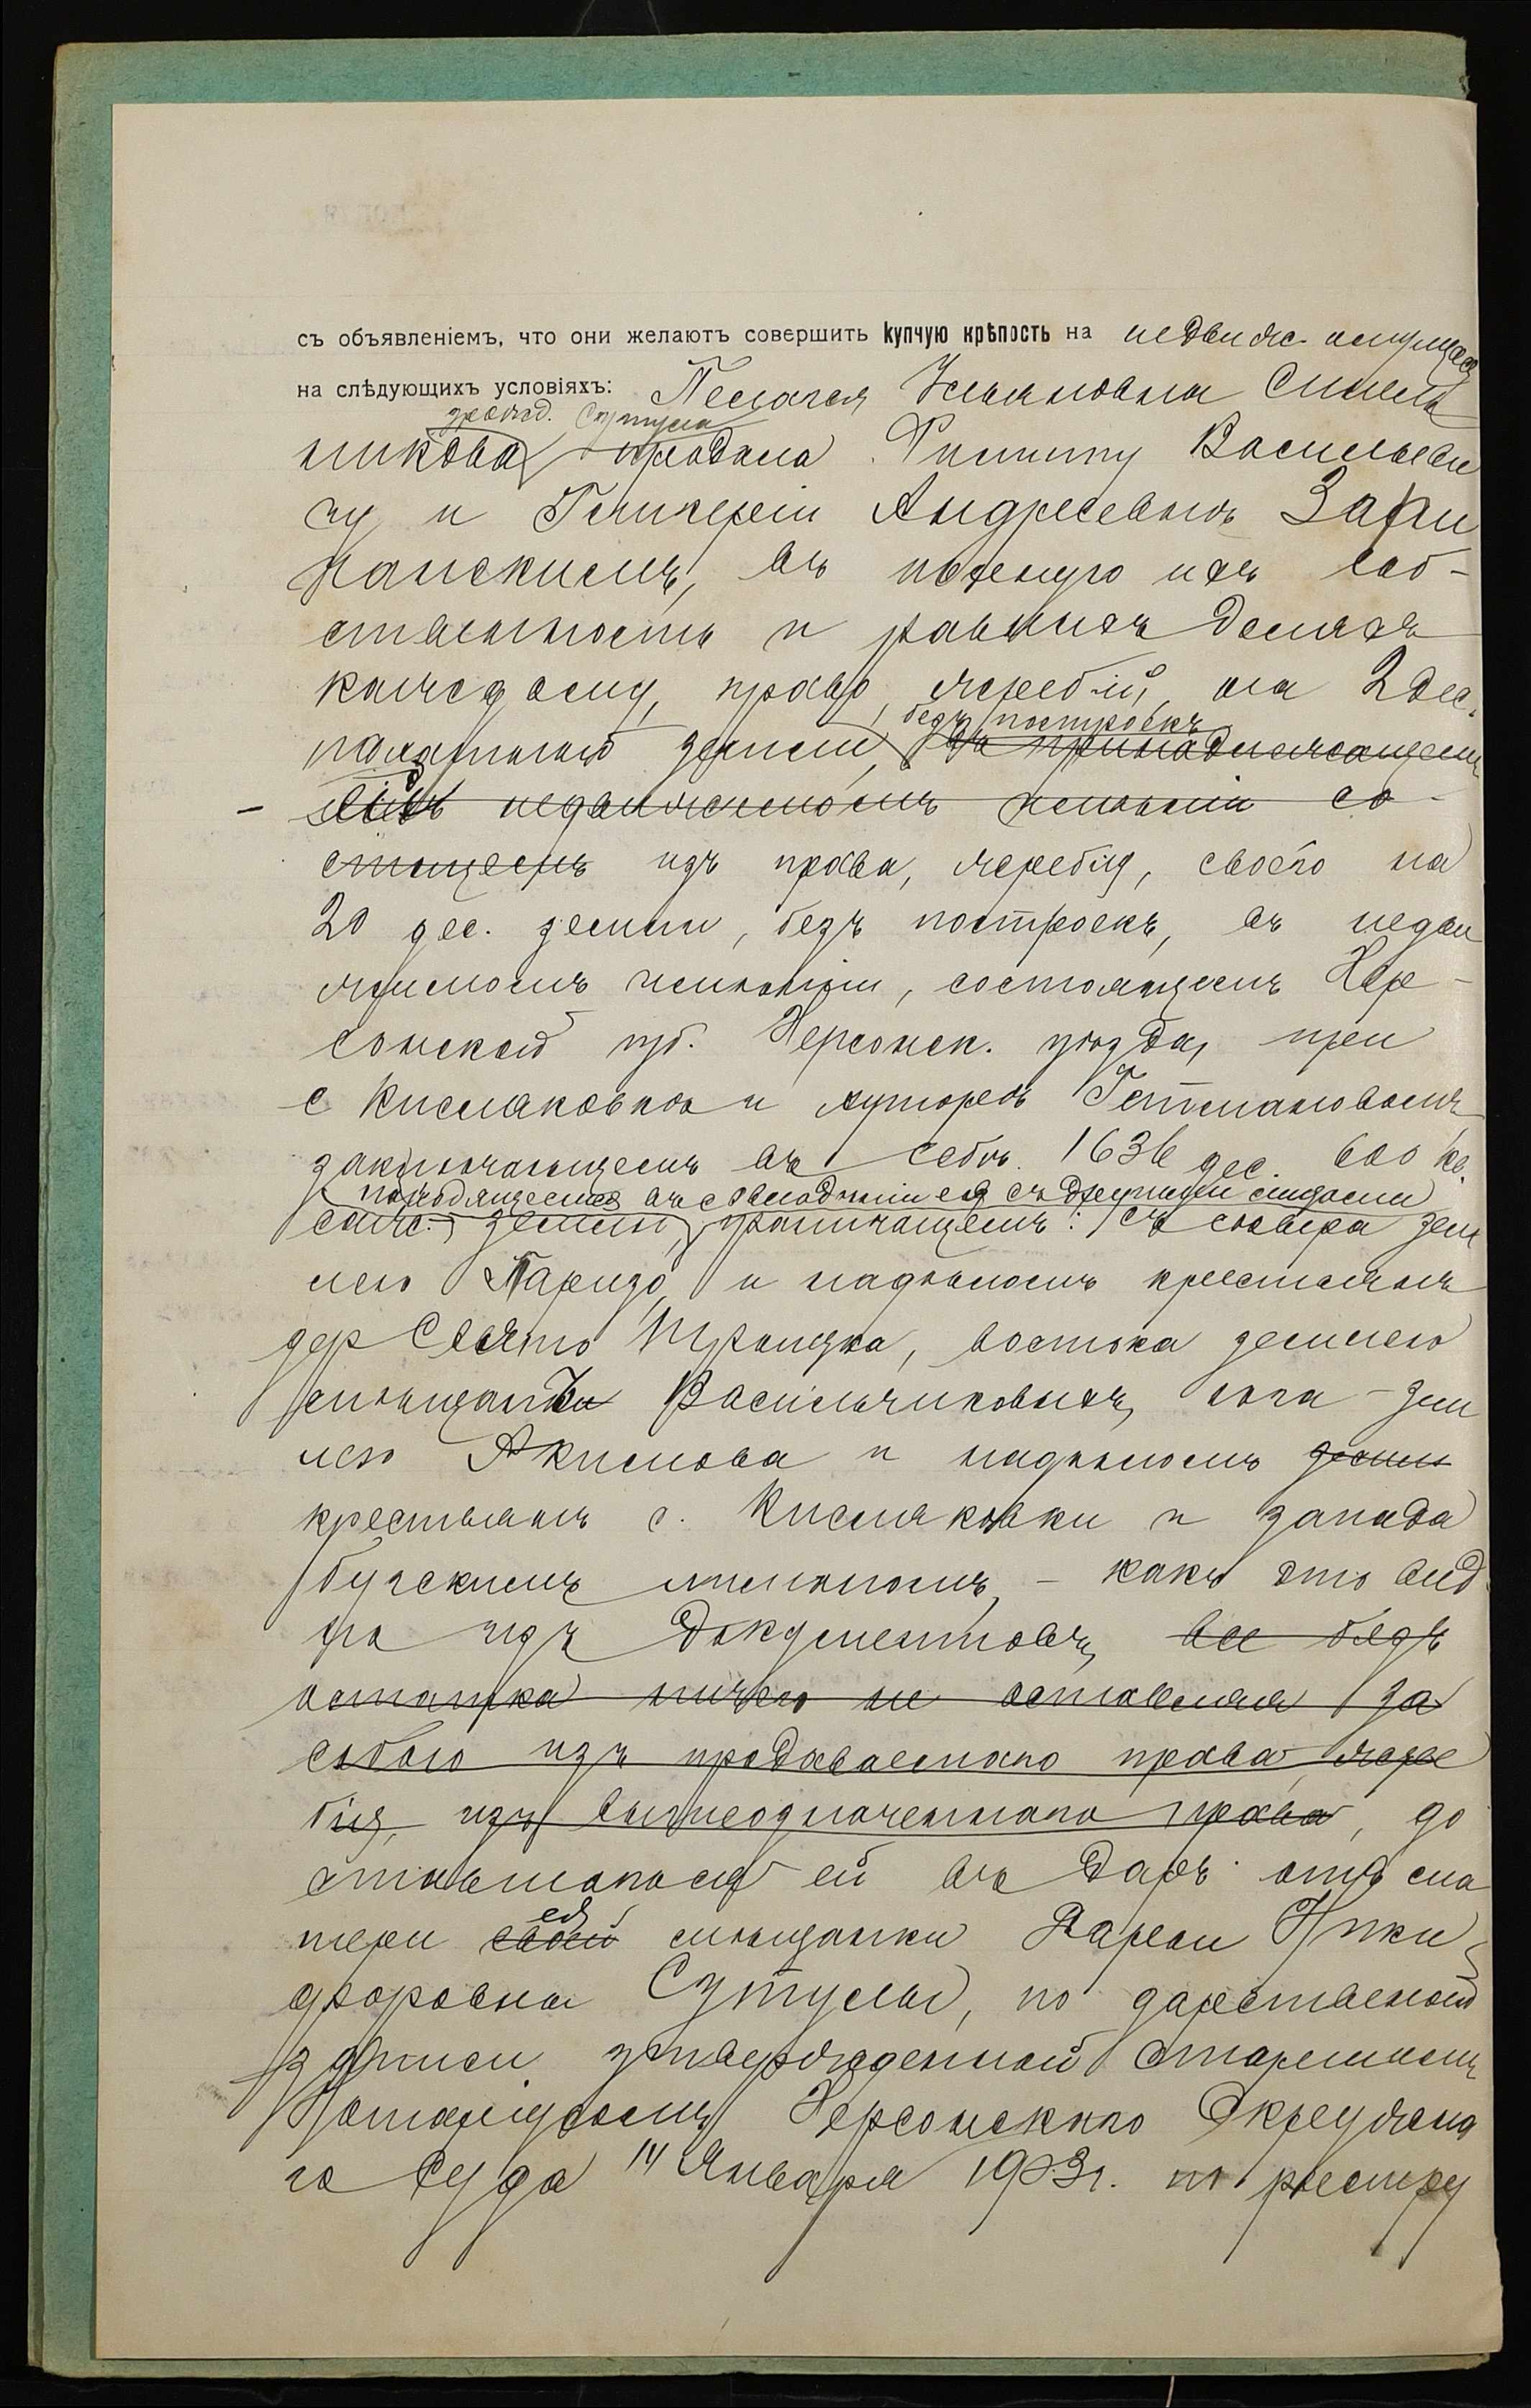 съ объявленіемъ, что они желаютъ совершить купчую крѣпость на недвиж. имущес
на слѣдующихъ условіяхъ: Пелагея Ульяновна Синель
урожд. Сутула
никова продала Филиппу Васильеви
чу и Гликеріи Андреевнѣ Зари
панскимъ, въ полную ихъ соб-
ственность и равныхъ доляхъ
каждому, право, жребій, на 2 дес.
безъ построекъ
пахатной земли, въ принадлежащемъ
ей недвижимомъ имѣніи со-
стоящемъ изъ права, жребія, своего на
20 дес. земли, безъ построекъ, въ недви
жимомъ имѣніи, состоящемъ Хер-
сонской губ. Херсонск. уѣзда, при
с Кисляковкѣ и хуторѣ Гетмановомъ
заключающемъ въ себѣ 1636 дес. 600 кв.
находящемся въ совладѣніи ея съ другими лицами
саж. земли, граничащемъ: съ сѣвера зем
лею Паризо и надѣломъ крестьянъ
дер Свято Троицка, востока землею
мѣщанъ Васильчиковыхъ, юга - зем
лею Акимова и надѣломъ земли
крестьянъ с. Кисляковки и запада
бугскимъ лиманомъ, - какъ это вид
но изъ документовъ, все безъ
остатка ничего не оставляя за
собою изъ продаваемаго права, жре
бія, изъ вышеозначеннаго права, до
ставшагося ей въ даръ отъ ма
ея
тери своей мѣщанки Дарьи Ники
форовны Сутулы, по дарственной
записи утвержденной Старшимъ
Нотаріусомъ Херсонскаго Окружна
го Суда 14 Января 1903 г. по реестру